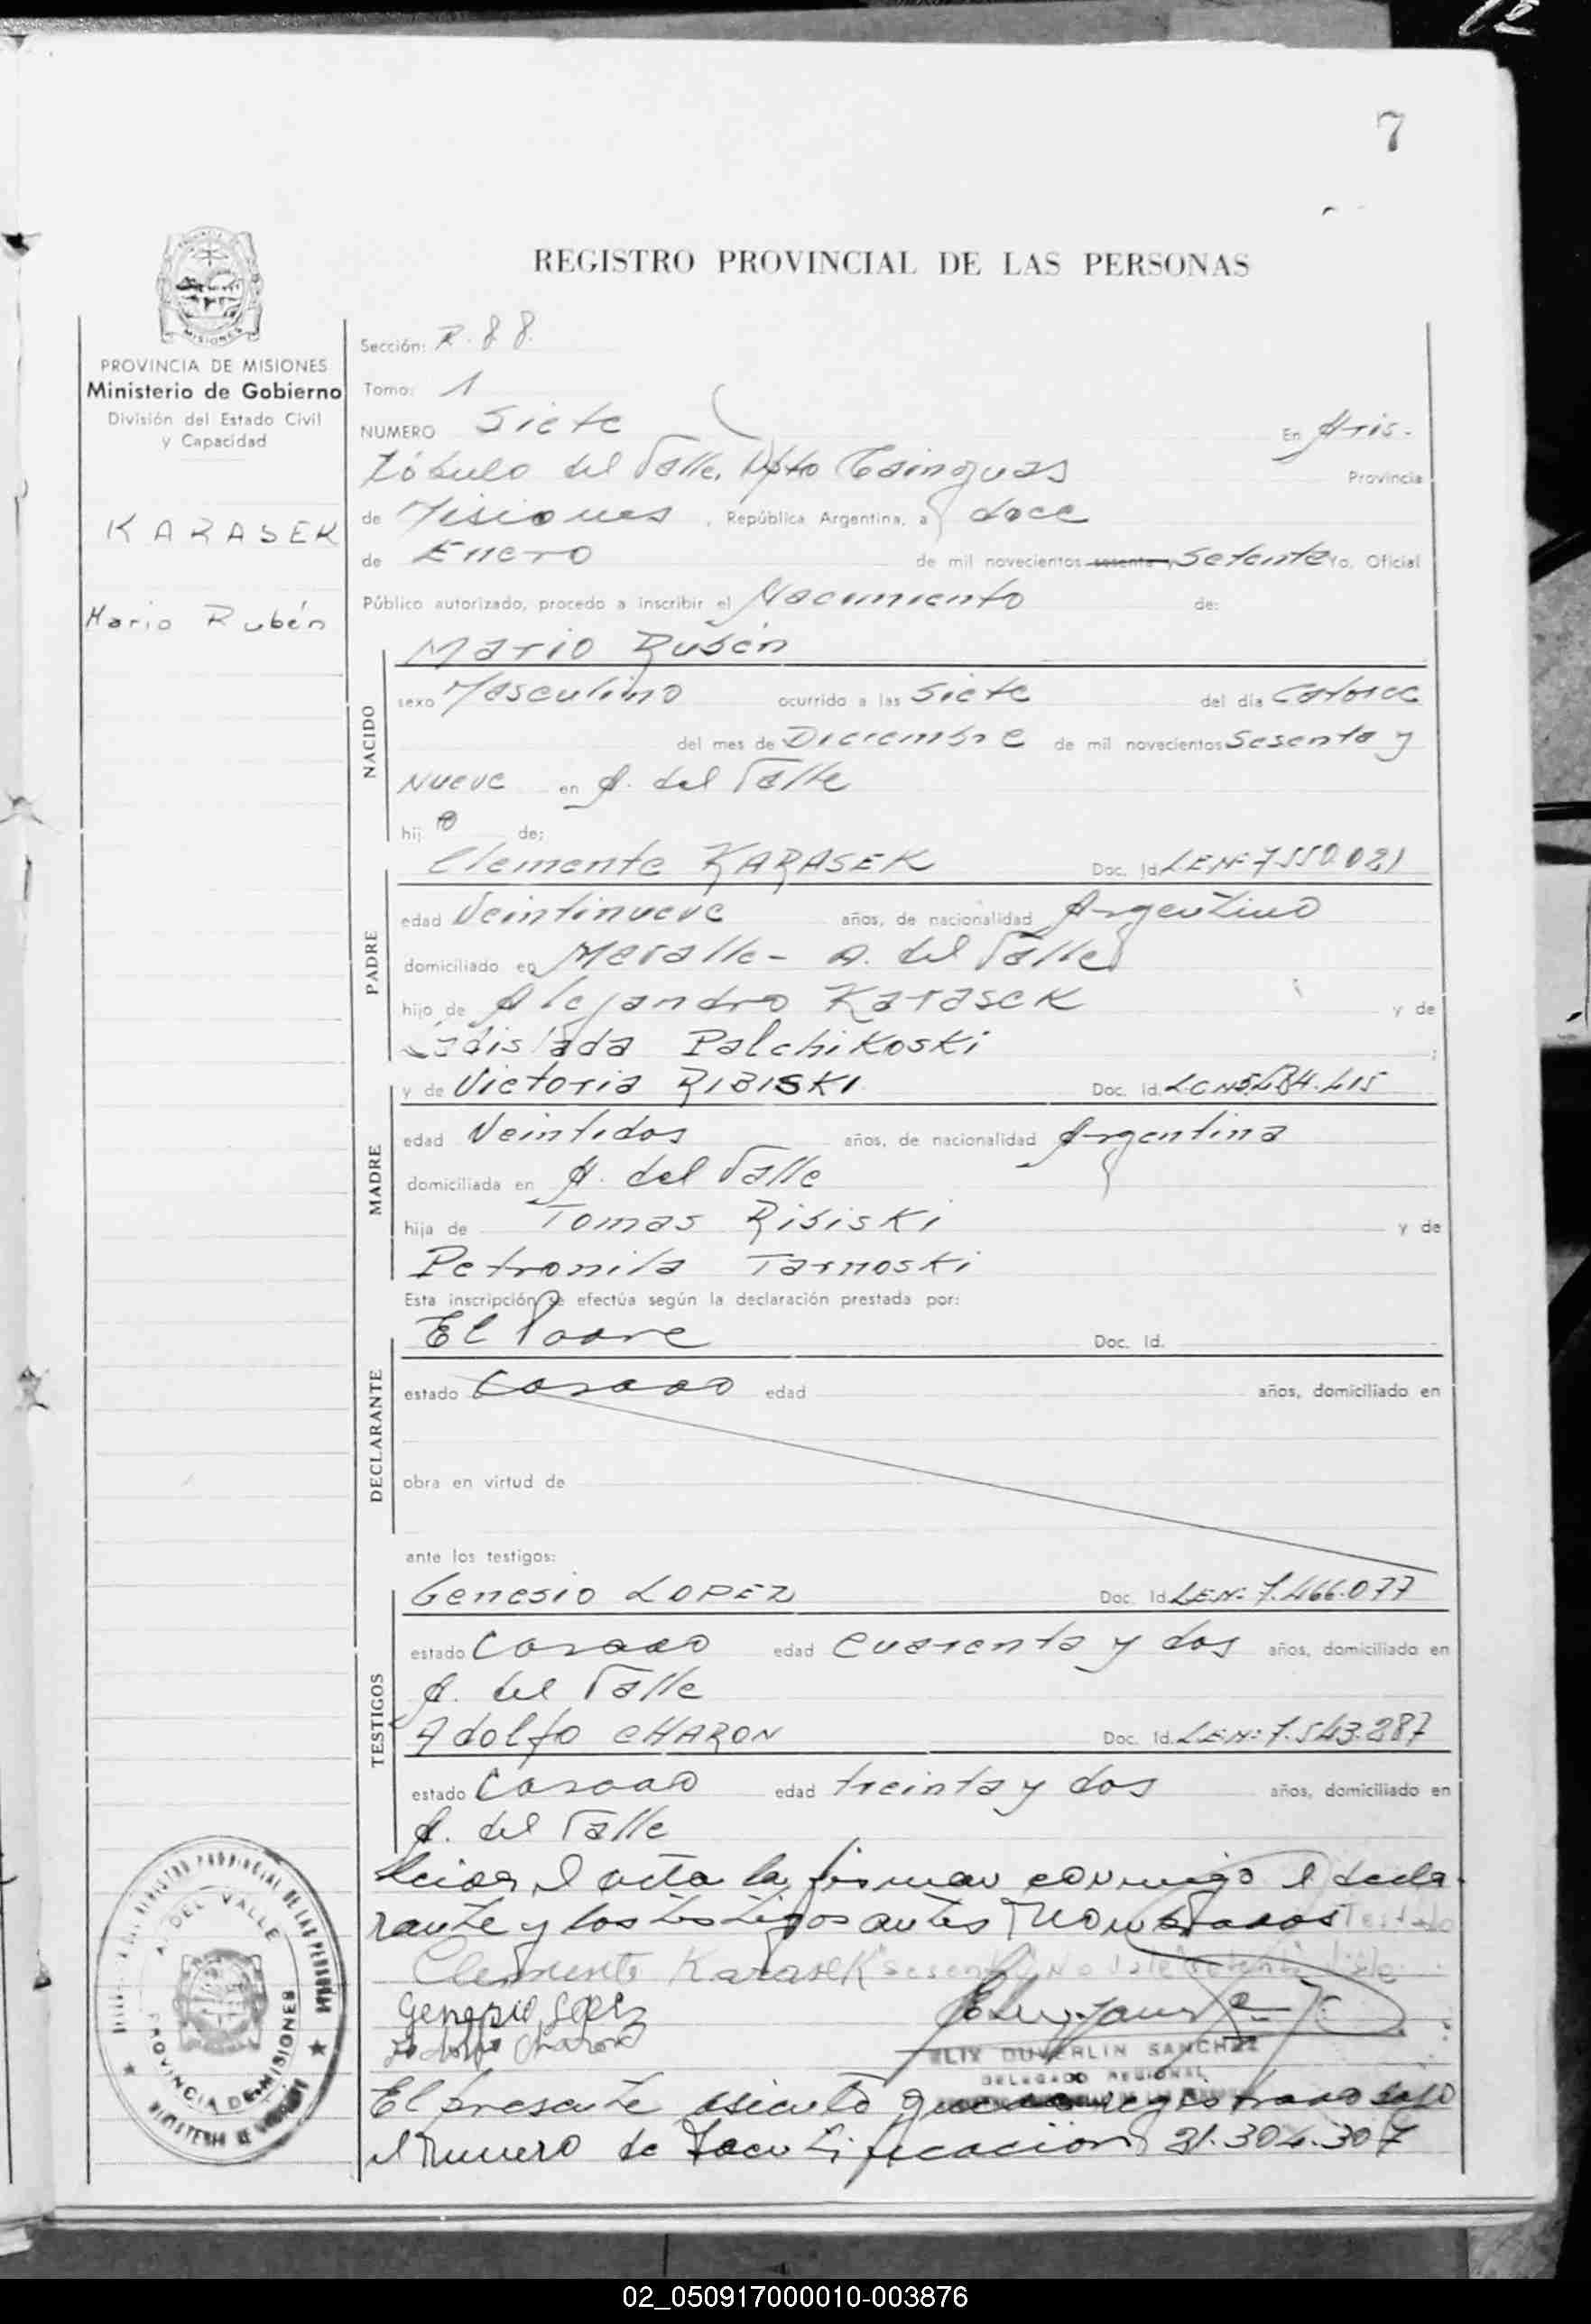 7
REGISTRO PROVINCIAL DE LAS PERSONAS
MISIONES
PROVINCIA DE MISIONES
Ministerio de Gobierno
División del Estado Civil
y Capacidad
KARASEK
Mario Rubén
Sección: R. 88.
Tomo: 1
NUMERO Siete En Aris-
tóbulo del Valle, Dpto Cainguas Provincia
de Misiones, República Argentina, a doce
de Enero de mil novecientos sesenta y Setenta Yo, Oficial
Público autorizado, procedo a inscribir el Nacimiento de:
NACIDO
Mario Rubén
sexo Masculino ocurrido a las siete del día Catorce
del mes de Diciembre de mil novecientos Sesenta y
Nueve en A. del Valle
hij o de;
PADRE
Clemente KARASEK Doc. Id. L.E.Nº 7550.021
edad Veintinueve años, de nacionalidad Argentino
domiciliado en - A. del Valle
hijo de Alejandro Karasek y de
Ladislada Palchikoski ;
MADRE
y de Victoria RIBISKI Doc. Id. L.C.Nº
edad Veintidos años, de nacionalidad Argentina
domiciliada en A. del Valle
hija de Tomas Ribiski y de
Petronila Tarnoski
Esta inscripción se efectúa según la declaración prestada por:
DECLARANTE
El Padre Doc. Id.
estado Casado edad años, domiciliado en
obra en virtud de
ante los testigos:
TESTIGOS
Genesio LOPEZ Doc. Id. L.E.Nº 7.466.077
estado Casado edad cuarenta y dos años, domiciliado en
A. del Valle
Adolfo CHARON Doc. Id. L.E.Nº 7.543.287
estado Casado edad treinta y dos años, domiciliado en
A. del Valle
Leida el acta la firman conmigo el decla-
rante y los testigos antes nombrados Testado
Clemente Karasek "sesenta" No Vale
Genesio Lopez
Adolfo Charon
DUVERLIN SANCHEZ
DELEGADO REGIONAL
El presente asiento queda registrado bajo
el numero de Identificación 21.304.307
A. DEL VALLE
PROVINCIA DE MISIONES
02_050917000010-003876